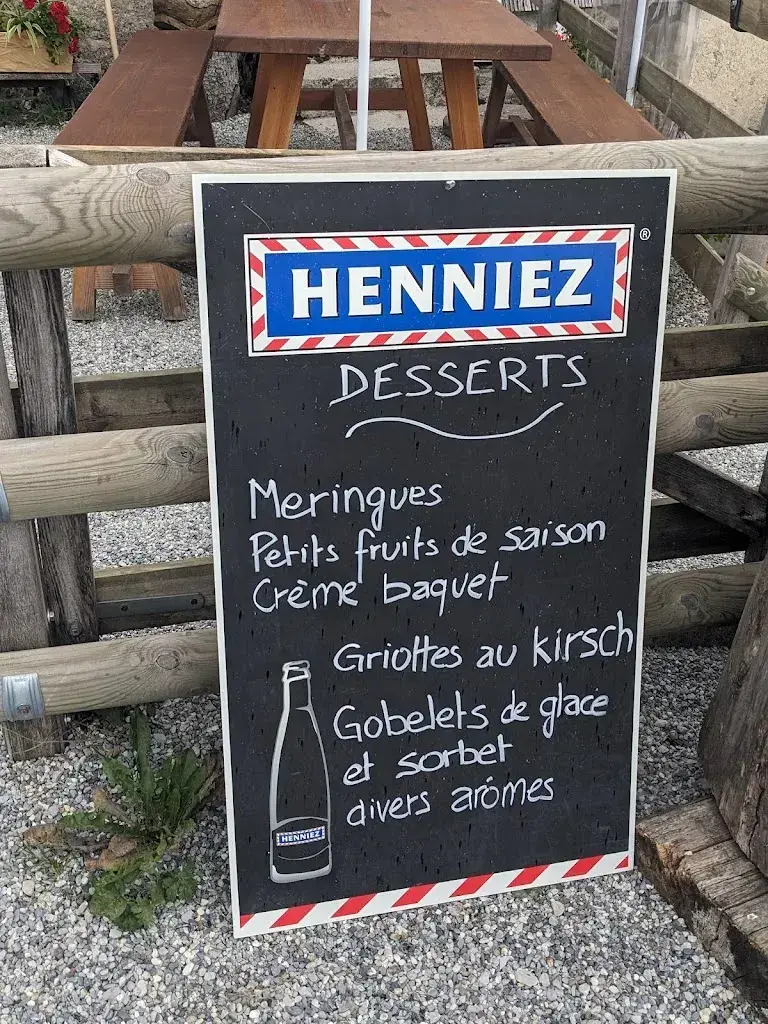 HENNIEZ ®
DESSERTS
Meringues
Petits fruits de saison
Crème baquet
Griottes au kirsch
Gobelets de glace
et sorbet
divers arômes
HENNIEZ